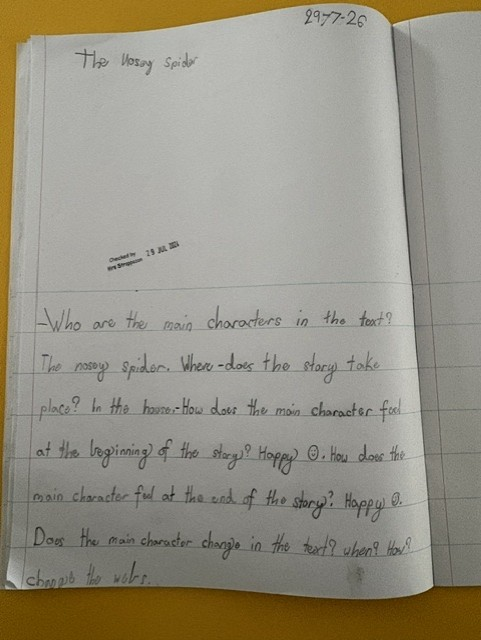 29-7-26
The nosey spider
Checked by 29 JUL
Mrs
-Who are the main characters in the text?
The nosey spider. Where-does the story take
place? In the house.-How does the main character feel
at the beginning of the story? Happy ☺. How does the
main character feel at the end of the story? Happy ☺.
Does the main character change in the text? when? How?
the webs.